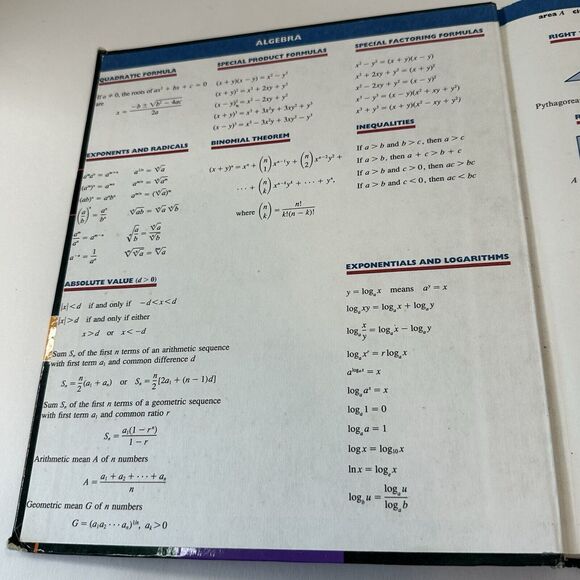 ALGEBRA
QUADRATIC FORMULA
If a ≠ 0, the roots of ax² + bx + c = 0
are
x = (−b ± √(b² − 4ac)) / 2a
EXPONENTS AND RADICALS
aᵐaⁿ = aᵐ⁺ⁿ a^(1/n) = ⁿ√a
(aᵐ)ⁿ = aᵐⁿ a^(m/n) = ⁿ√aᵐ
(ab)ⁿ = aⁿbⁿ a^(m/n) = (ⁿ√a)ᵐ
(a/b)ⁿ = aⁿ/bⁿ ⁿ√ab = ⁿ√a ⁿ√b
aᵐ/aⁿ = aᵐ⁻ⁿ ⁿ√(a/b) = ⁿ√a / ⁿ√b
a⁻ⁿ = 1/aⁿ ᵐ√ⁿ√a = ᵐⁿ√a
ABSOLUTE VALUE (d > 0)
|x| < d if and only if −d < x < d
|x| > d if and only if either
x > d or x < −d
Sum Sₙ of the first n terms of an arithmetic sequence
with first term a₁ and common difference d
Sₙ = n/2(a₁ + aₙ) or Sₙ = n/2[2a₁ + (n − 1)d]
Sum Sₙ of the first n terms of a geometric sequence
with first term a₁ and common ratio r
Sₙ = a₁(1 − rⁿ) / (1 − r)
Arithmetic mean A of n numbers
A = (a₁ + a₂ + · · · + aₙ) / n
Geometric mean G of n numbers
G = (a₁a₂ · · · aₙ)^(1/n), aₖ > 0
SPECIAL PRODUCT FORMULAS
(x + y)(x − y) = x² − y²
(x + y)² = x² + 2xy + y²
(x − y)² = x² − 2xy + y²
(x + y)³ = x³ + 3x²y + 3xy² + y³
(x − y)³ = x³ − 3x²y + 3xy² − y³
BINOMIAL THEOREM
(x + y)ⁿ = xⁿ + (n 1)xⁿ⁻¹y + (n 2)xⁿ⁻²y² +
· · · + (n k)xⁿ⁻ᵏyᵏ + · · · + yⁿ,
where (n k) = n! / k!(n − k)!
SPECIAL FACTORING FORMULAS
x² − y² = (x + y)(x − y)
x² + 2xy + y² = (x + y)²
x² − 2xy + y² = (x − y)²
x³ − y³ = (x − y)(x² + xy + y²)
x³ + y³ = (x + y)(x² − xy + y²)
INEQUALITIES
If a > b and b > c, then a > c
If a > b, then a + c > b + c
If a > b and c > 0, then ac > bc
If a > b and c < 0, then ac < bc
EXPONENTIALS AND LOGARITHMS
y = logₐ x means aʸ = x
logₐ xy = logₐ x + logₐ y
logₐ x/y = logₐ x − logₐ y
logₐ xʳ = r logₐ x
a^(logₐ x) = x
logₐ aˣ = x
logₐ 1 = 0
logₐ a = 1
log x = log₁₀ x
ln x = logₑ x
log_b u = logₐ u / logₐ b
area A
RIGHT
Pythagorea
A